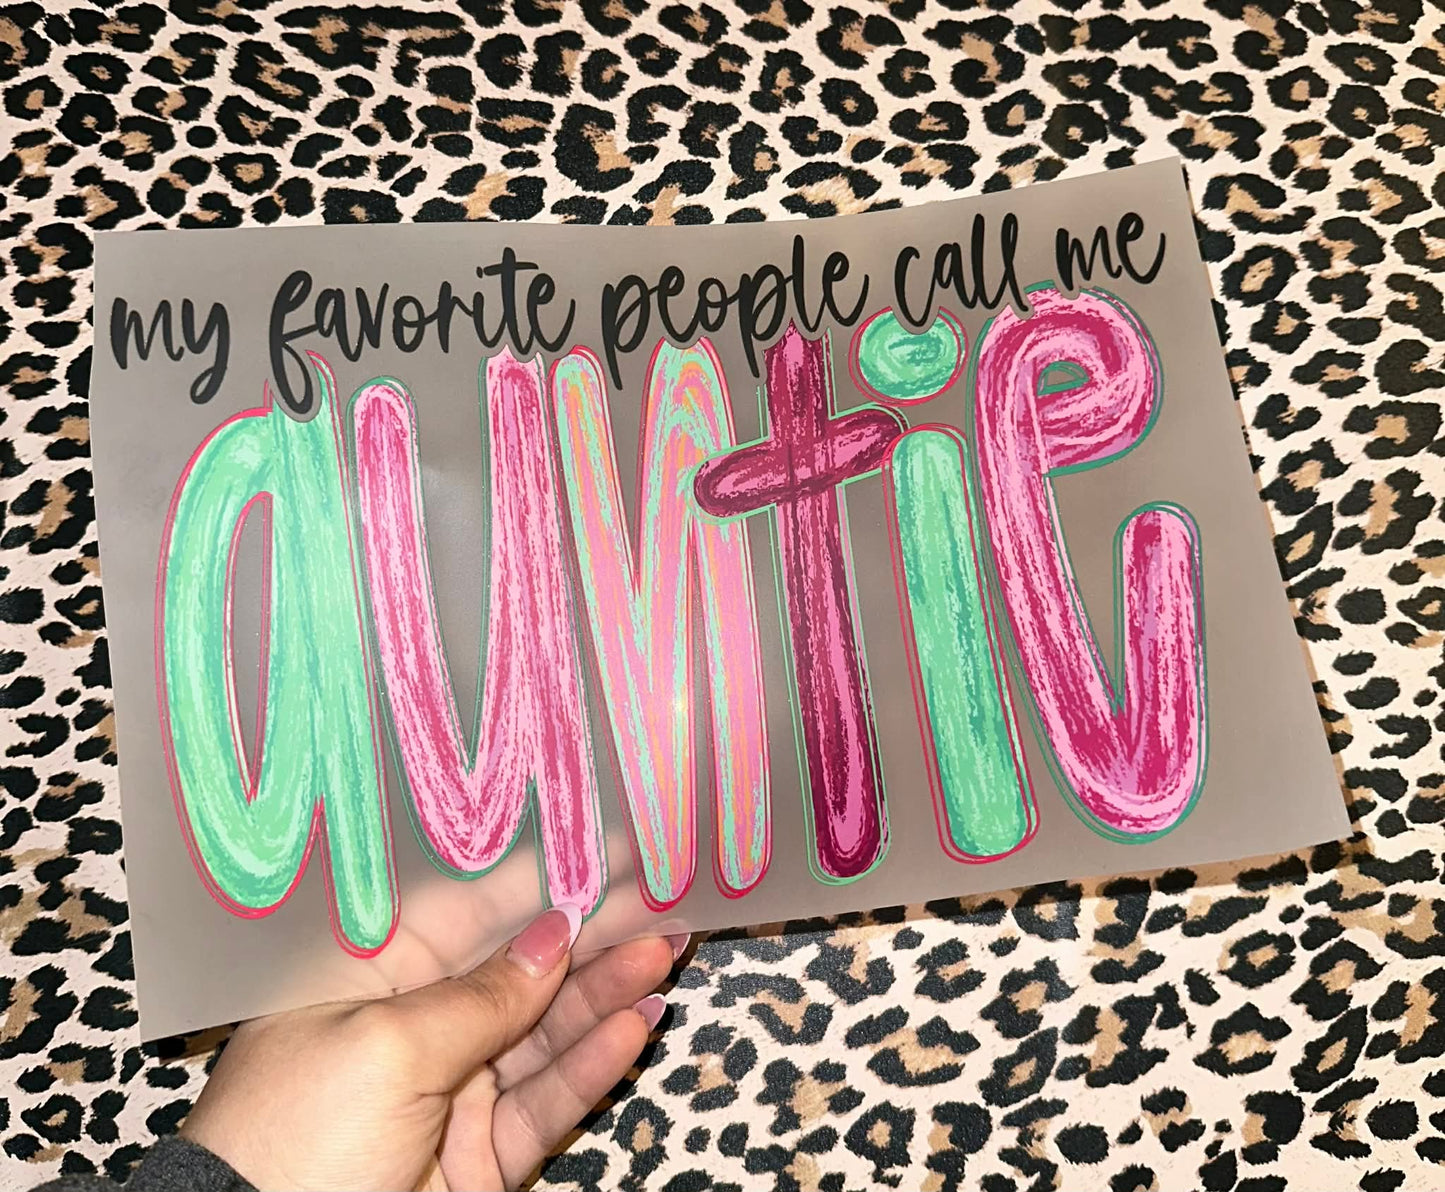 my favorite people call me
auntie